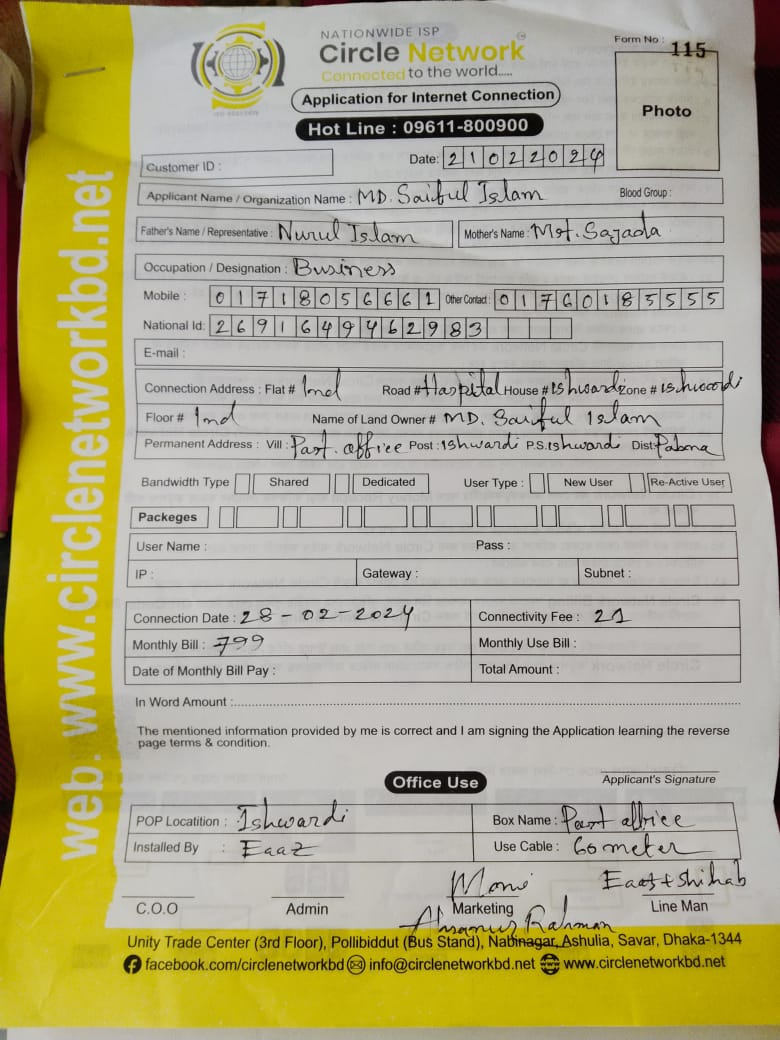 NATIONWIDE ISP
Circle Network
Connected to the world.....
Form No : 115
Application for Internet Connection
Photo
Hot Line : 09611-800900
Customer ID :
Date: 21022024
Applicant Name / Organization Name : MD. Saiful Islam Blood Group :
Father's Name / Representative : Nurul Islam Mother's Name : Mst. Sajada
Occupation / Designation : Business
Mobile : 01718056661 Other Contact : 01760185555
National Id: 2691649462983
E-mail :
Connection Address : Flat # 1nd Road # Haspital House # Ishwardi Zone # Ishwardi
Floor # 1nd Name of Land Owner # MD. Saiful Islam
Permanent Address : Vill : Past. office Post : Ishwardi P.S. Ishwardi Dist: Pabna
Bandwidth Type Shared Dedicated User Type : New User Re-Active User
Packeges
User Name : Pass :
IP : Gateway : Subnet :
Connection Date : 28-02-2024 Connectivity Fee : 21
Monthly Bill : 799 Monthly Use Bill :
Date of Monthly Bill Pay : Total Amount :
In Word Amount :
The mentioned information provided by me is correct and I am signing the Application learning the reverse
page terms & condition.
Applicant's Signature
Office Use
POP Locatition : Ishwardi Box Name : Past office
Installed By : Eaaz Use Cable : 60 meter
Moni + Shihab
C.O.O Admin Marketing Line Man
Rahman
Unity Trade Center (3rd Floor), Pollibiddut (Bus Stand), Nabinagar, Ashulia, Savar, Dhaka-1344
facebook.com/circlenetworkbd info@circlenetworkbd.net www.circlenetworkbd.net
web. www.circlenetworkbd.net